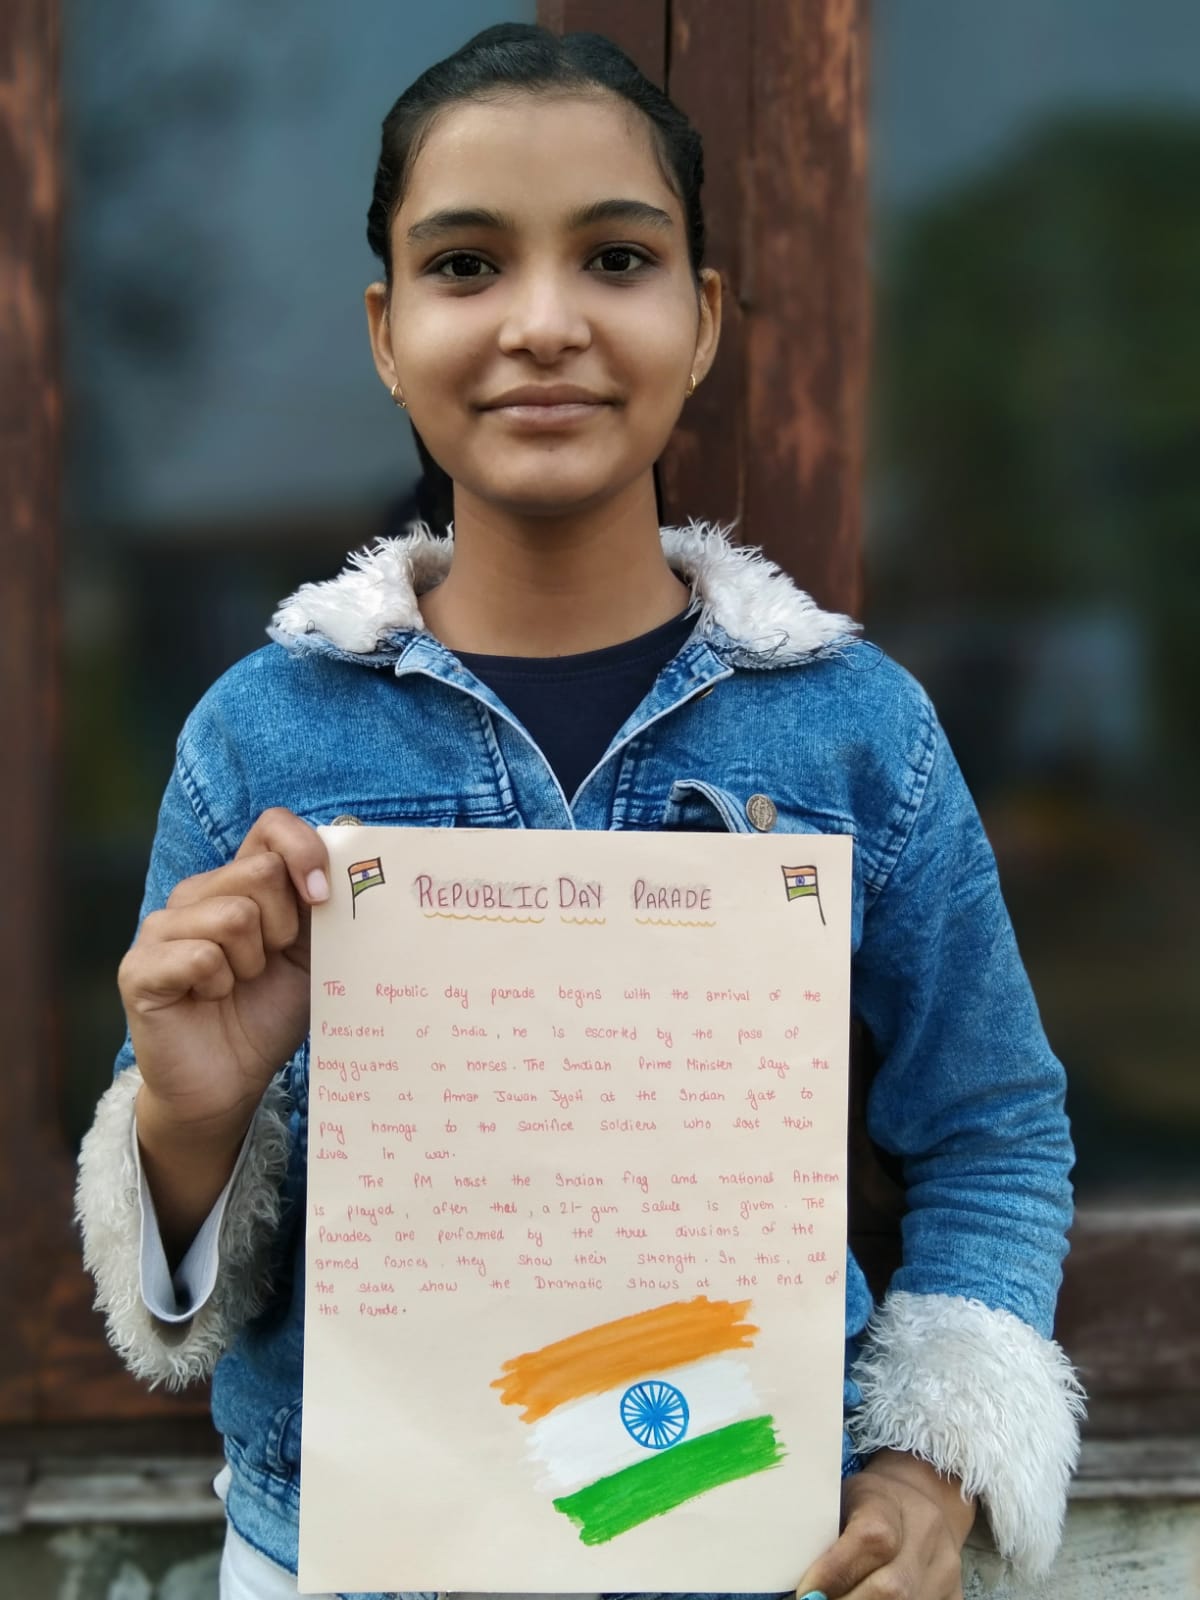 REPUBLIC DAY PARADE
The Republic day parade begins with the arrival of the
President of India, he is escorted by the pass of
bodyguards on horses. The Indian Prime Minister lays the
flowers at Amar Jawan Jyoti at the Indian Gate to
pay homage to the sacrifice soldiers who lost their
lives in war.
The PM hoist the Indian flag and national Anthem
is played, after that, a 21-gun salute is given. The
Parades are performed by the three divisions of the
armed forces. they show their strength. In this, all
the states show the Dramatic shows at the end of
the Parade.